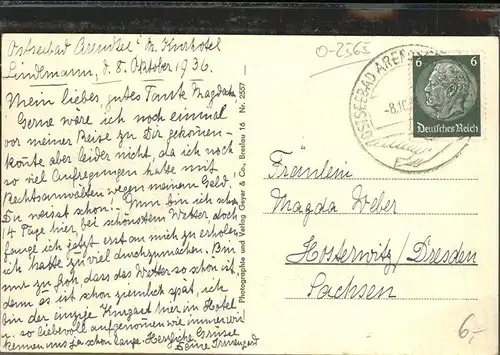 Ostseebad Arendsee i. M. Kurhotel
Lindemann, d. 8. Oktober 1936.
Mein liebes gutes Tante Magdah.
Gerne wäre ich noch einmal
vor meiner Reise zu Dir gekommen-
konte aber leider nicht, da ich noch
so viel Aufregungen hatte mit
Rechtsanwälten wegen meinem Geld,
Du weisst schon! Nun bin ich schon
14 Tage hier, bei schönstem Wetter, doch
fange ich jetzt erst an mich zu erholen,
ich hatte zu viel durchzumachen. Bin
nur zu froh, dass das Wetter so schön ist,
denn es ist schon ziemlich spät, ich
bin der einzige Kurgast hier im Hotel
u. so liebevoll aufgenommen wie immer, wir
kennen uns ja schon lange. Herzliche Grüsse
Deine Irmengard
Photographie und Verlag Geyer & Co., Breslau 16 Nr. 2557
O-2565
OSTSEEBAD ARENDSEE
-8.10.
6 6
Deutsches Reich
Fräulein
Magda Weber
Hosterwitz/Dresden
Sachsen
6,-